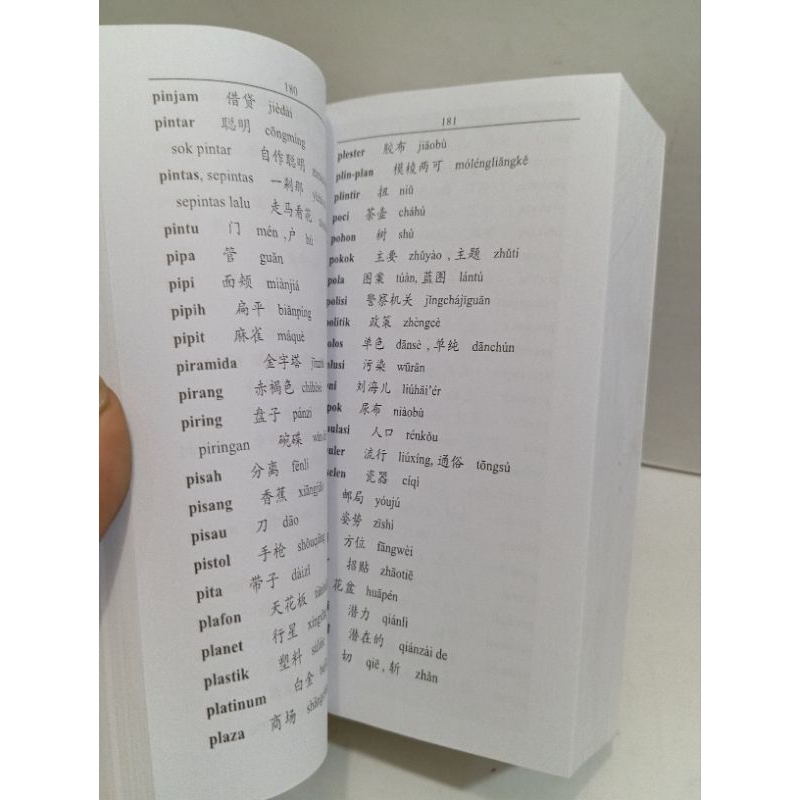 180
pinjam 借贷 jièdài
pintar 聪明 cōngmíng
sok pintar 自作聪明
pintas, sepintas 一刹那
sepintas lalu 走马看花
pintu 门 mén , 户 hù
pipa 管 guǎn
pipi 面颊 miànjiá
pipih 扁平 biānpíng
pipit 麻雀 máquè
piramida 金字塔
pirang 赤褐色 chìhèsè
piring 盘子 pánzi
piringan 碗碟
pisah 分离 fēnlí
pisang 香蕉
pisau 刀 dāo
pistol 手枪 shǒuqiāng
pita 带子 dàizi
plafon 天花板
planet 行星
plastik 塑料
platinum 白金
plaza 商场
181
plester 胶布 jiāobù
plin-plan 模棱两可 móléngliǎngkě
plintir 扭 niǔ
poci 茶壶 cháhú
pohon 树 shù
pokok 主要 zhǔyào , 主题 zhǔtí
pola 图案 túàn, 蓝图 lántú
polisi 警察机关 jǐngchájīguān
politik 政策 zhèngcè
olos 单色 dānsè , 单纯 dānchún
lusi 污染 wūrǎn
ni 刘海儿 liúhǎi'ér
pok 尿布 niàobù
ulasi 人口 rénkǒu
uler 流行 liúxíng, 通俗 tōngsú
selen 瓷器 cíqì
邮局 yóujú
姿势 zīshì
方位 fāngwèi
招贴 zhāotiē
花盆 huāpén
潜力 qiánlì
潜在的 qiánzài de
切 qiē , 斩 zhǎn